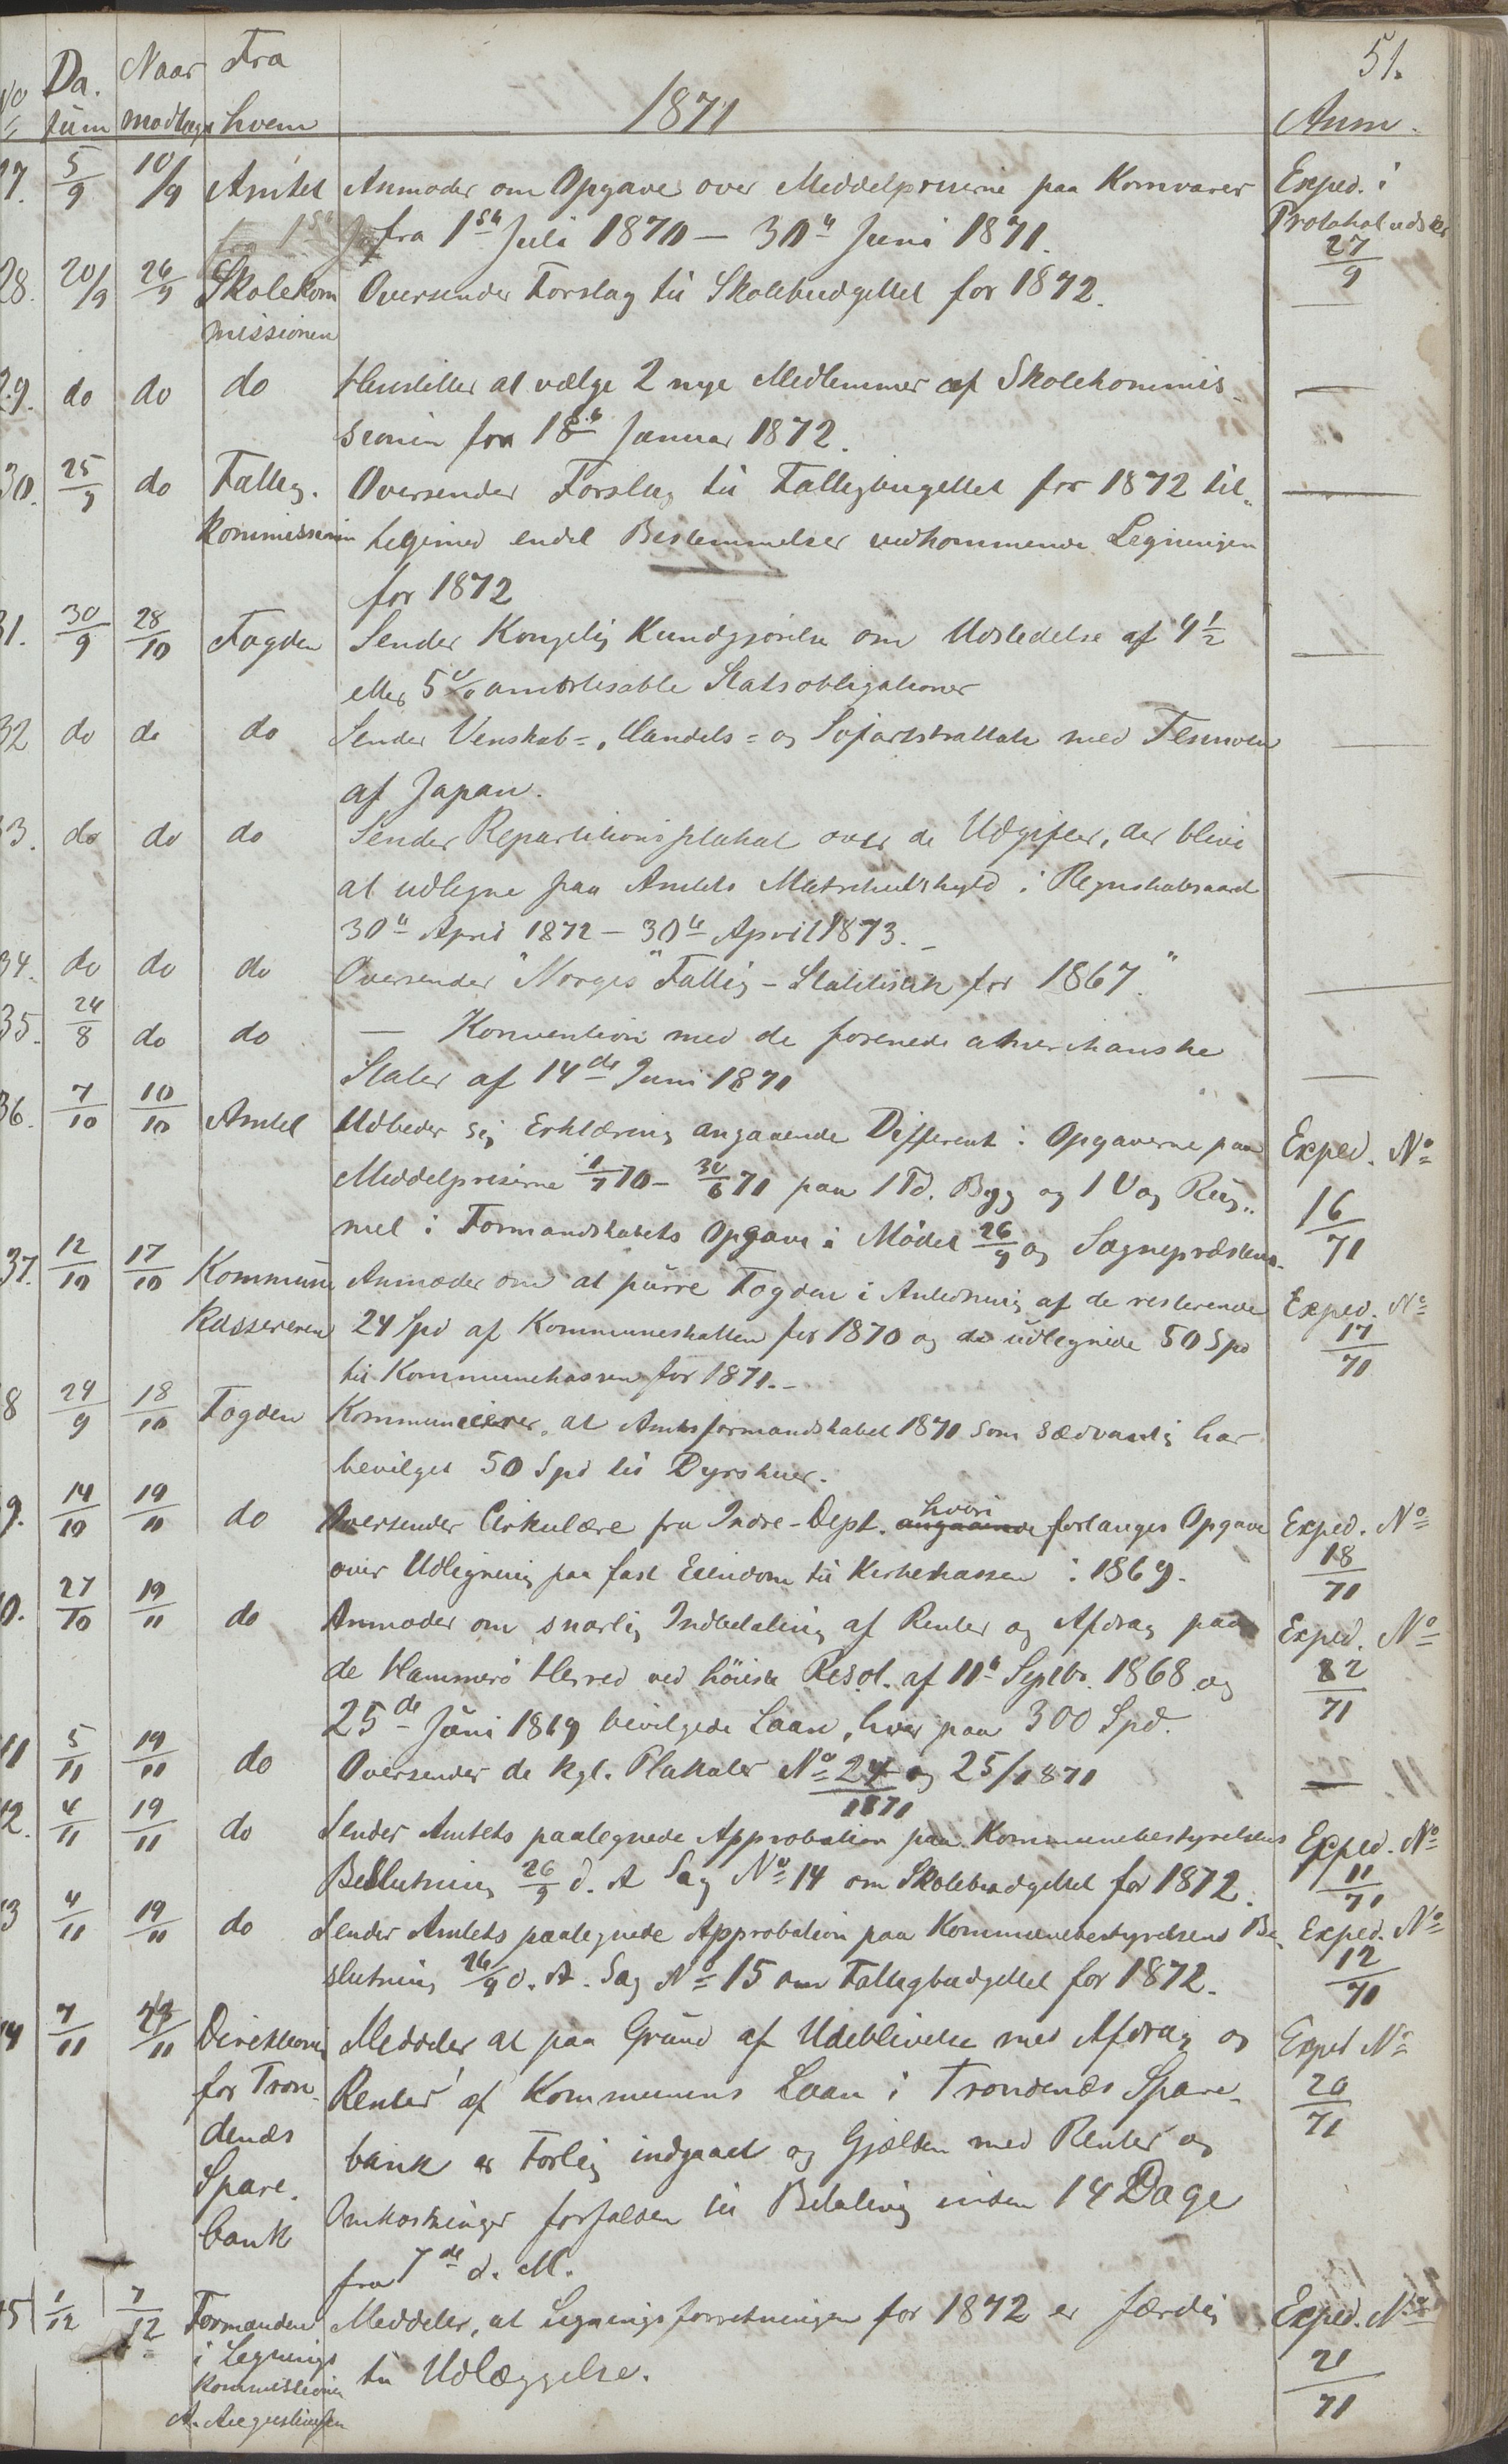 51.
No Da. Naar Fra
tum modtaget hvem 1871 Anm.
27. 5/9 10/9 Amtet Anmoder om Opgave over Middelpriserne paa Kornvarer Exped. i
fra 1ste Juli 1870 — 30te Juni 1871. Protokoludskr
27/9
28. 20/9 26/9 Skolekom Oversender Forslag til Skolebudgettet for 1872. —
missionen
29. do do do Henstiller at vælge 2 nye Medlemmer af Skolekommis- —
sionen fra 1ste Januar 1872.
30. 25/9 do Fattig. Oversender Forslag til Fattigbugettet for 1872 til- —
kommissionen ligemed endel Bestemmelser vedkommende Ligningen
for 1872
31. 30/9 28/10 Fogden Sender Kongelig Kundgjørelse om Udstedelse af 4 1/2 —
eller 5 % amortisable Statsobligationer
32 do do do Sender Venskab-, Handels- og Søfartstraktat med Tennoen —
af Japan.
33. do do do Sender Repartitionsplakat over de Udgifter, der blive —
at udligne paa Amtets Matrikulskyld i Regnskabsaaret
30te April 1872 — 30te April 1873. —
34. do do do Oversender "Norges" Fattig-Statistik for 1867." —
35. 24/8 do do — Konvention med de forenede amerikanske
Stater af 14de Juni 1871 —
36. 7/10 10/10 Amtet Udbeder sig Erklæring angaaende Different i Opgaverne paa Exped. No
Middelpriserne 1/7 70 - 30/6 71 paa 1 Td. Byg og 1 Vog Rug- 16/71
mel i Formandskabets Opgave i Mødet 26/9 og Sognepræstens.
37. 12/10 17/10 Kommune Anmoder om at purre Fogden i Anledning af de resterende Exped. No
Kassereren 24 Spd af Kommuneskatten for 1870 og de udlignede 50 Spd 17/71
til Kommunekassen for 1871. —
8 29/9 18/10 Fogden Kommunicerer, at Amtsformandskabet 1871 som sædvanlig har
bevilget 50 Spd til Dyrskuer.
9. 14/10 19/11 do Oversender Cirkulære fra Indre-Dept. angaaende hvori forlanges Opgave Exped. No
over Udligning paa fast Eiendom til Kirkekassen i 1869. 18/71
0. 27/10 19/11 do Anmoder om snarlig Indbetaling af Renter og Afdrag paa Exped. No
de Hammerø Herred ved høieste Resol. af 11te Septbr. 1868 og 22/71
25de Juni 1869 bevilgede Laan, hver paa 300 Spd.
11 5/11 19/11 do Oversender de kgl. Plakater No 24 og 25/1871 —
1871
12. 4/11 19/11 do Sender Amtets paategnede Approbation paa Kommunebestyrelsens Exped. No
Beslutning 26/9 d. A Sag No 14 om Skolebudgettet for 1872. 11/71
13 4/11 19/11 do Sender Amtets paategnede Approbation paa Kommunebestyrelsens Be- Exped. No
slutning 26/9 d. A. Sag No 15 om Fattigbudgettet for 1872. 12/71
14 7/11 /11 Direktionen Meddeler at paa Grund af Udeblivelse med Afdrag og Exped No
for Tron- Renter af Kommunens Laan i Trondenæs Spare- 20/71
denæs bank er Forlig indgaaet og Gjælden med Renter og
Spare- Omkostninger forfalden til Betaling inden 14 Dage
bank fra 7de d. M.
15 1/12 7/12 Formanden Meddeler, at Ligningsforretningen for 1872 er færdig Exped. No
i Lignings til Udlæggelse. 21/71
kommissionen
A. Augustinsen